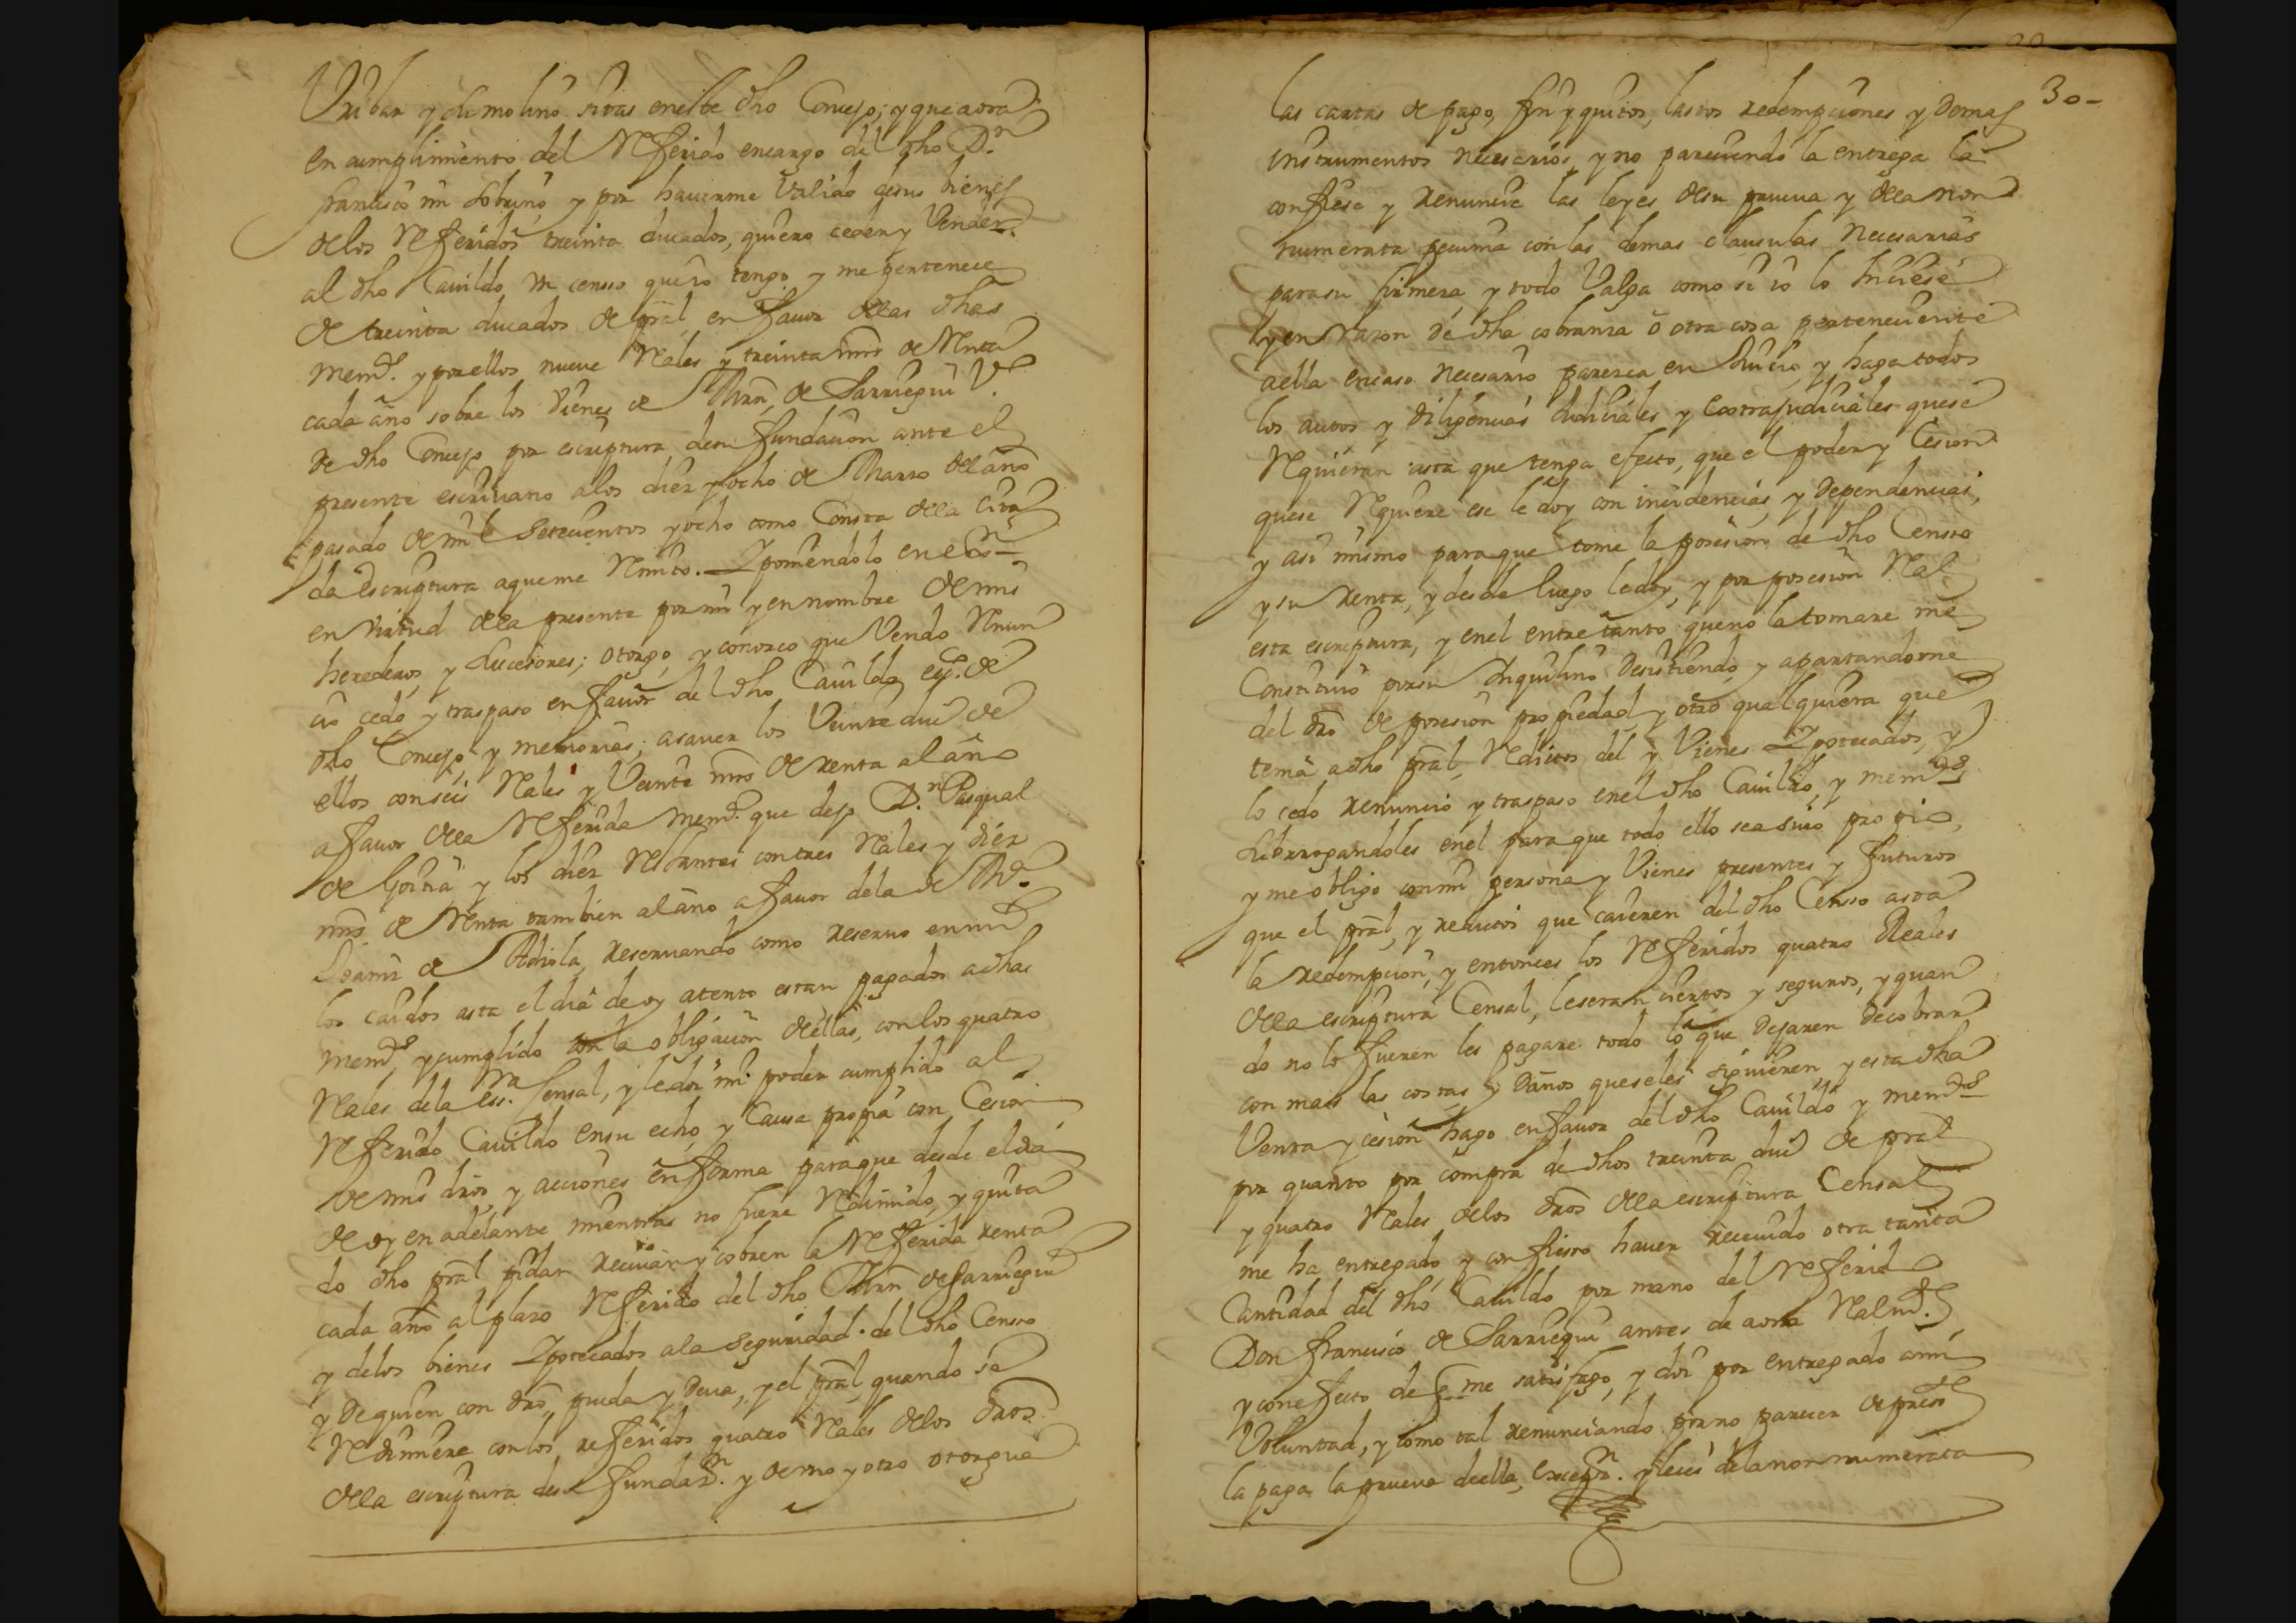 Uribar y de molino sitas en este dho Concejo; y que aora
en cumplimiento del Referido encargo del dho D.n
fran.co mi sobrino y por hauerme Valido desus bienes
delos Referidos treinta ducados, quiero ceder y Vender
al dho Cauildo un censso que io tengo y me pertenece
de treinta ducados de pral en fauor delas dhas
mem.s y por ellos nueue Rales y treinta mrs de Renta
cada año sobre los Vienes de Mrn de Sarriegui V.o
de dho Concejo por escriptura desu fundacion ante el
presente escriuano alos diez y ocho de Marzo del año
pasado de mil Setecientos y ocho como Consta dela Cita
da escriptura aque me Remito. Iponiendolo en efto
en virtud dela presente por mi y en nombre de mis
herederos y Sucesores; otorgo, y conozco que Vendo Renun
cio cedo y traspaso en fauor del dho Cauildo ecc.o de
dho Concejo, y memorias; asauer los Veinte duc.s de
ellos con seis Rales y Veinte mrs de renta al año
a fauor dela Referida mem.a que dejo D.n Pasqual
de Goitia y los diez Restantes con tres Rales y diez
mrs de Renta tambien al año a fauor dela de Md.o
de Adiola, reseruando como reseruo en mi
los caidos asta el dia de oy atento estan pagados adhas
mem.s, y cumplido con la obligacion dellas, con los quatro
Rales dela ess.ra Censal, y le doi mi poder cumplido al
Referido Cauildo ensu echo, y Causa propia con Cesion
de mis dros, y acciones en forma para que desde el dia
de oy en adelante mientras no fuere Redimido, y quita
do dho pral pidan reciuan y cobren la Referida renta
cada año al plazo Referido del dho Mrn de Sarriegui
y delos bienes Ipotecados ala Seguridad del dho Censso
y de quien con dro, pueda y Deua, y el pral quando se
Redimiere con los referidos quatro Rales delos dros
dela escriptura desu fundaz.n y de uno y otro otorgue
30-
las cartas de pago, fin y quitos, lastos redempciones y demas
instrumentos necesarios, y no pareciendo la entrega la
confiese y renuncie las leyes desu prueua y dela non
numerata pecunia con las demas clausulas Necesarias
para su firmeza, y todo Valga como si io lo hiciese
y en razon de dha cobranza o otra cosa perteneciente
aella en caso Necesario parezca en Juicio, y haga todos
los autos y diligencias Judiciales y Extrajudiciales que se
Requieran asta que tenga efecto, que el poder y Cesion
que se Requiere ese le doy con incidencias, y dependencias,
y asi mismo para que tome la posesion de dho Censso
y su renta, y desde luego le doy, y por posesion Ral
esta escriptura, y en el entretanto que no la tomare me
Constituio por su Inquilino Desistiendo, y apartandome
del dro de posesion propiedad y otro qualquiera que
tenia adho pral, Reditos del y Vienes Ipotecados, y
lo cedo renuncio y traspaso en el dho Cauildo, y mem.as
Subrrogandoles en el para que todo ello sea suio propio,
y me obligo con mi persona y Vienes presentes y futuros
que el pral, y reditos que caieren del dho Censso asta
la redempcion, y entonces los Referidos quatro Reales
dela escriptura Censal, le seran ciertos y seguros, y quan
do no lo fueren les pagare todo lo que Dejaren de cobrar
con mas las costas y Daños que seles siguieren, y esta dha
Venta y cesion hago en fauor del dho Cauildo y mem.as
por quanto por compra de dhos treinta duc.s de pral
y quatro Rales delos dros dela escriptura Censal
me ha entregado y confieso hauer receuido otra tanta
Cantidad del dho Cauildo por mano del Referido
Don Francisco de Sarriegui antes de aora Ralm.te
y con efecto de q me satisfago, y doi por entregado a mi
Voluntad, y como tal renunciando por no parecer de preste
la paga la prueua de ella, excepz.n y leies dela non numerata